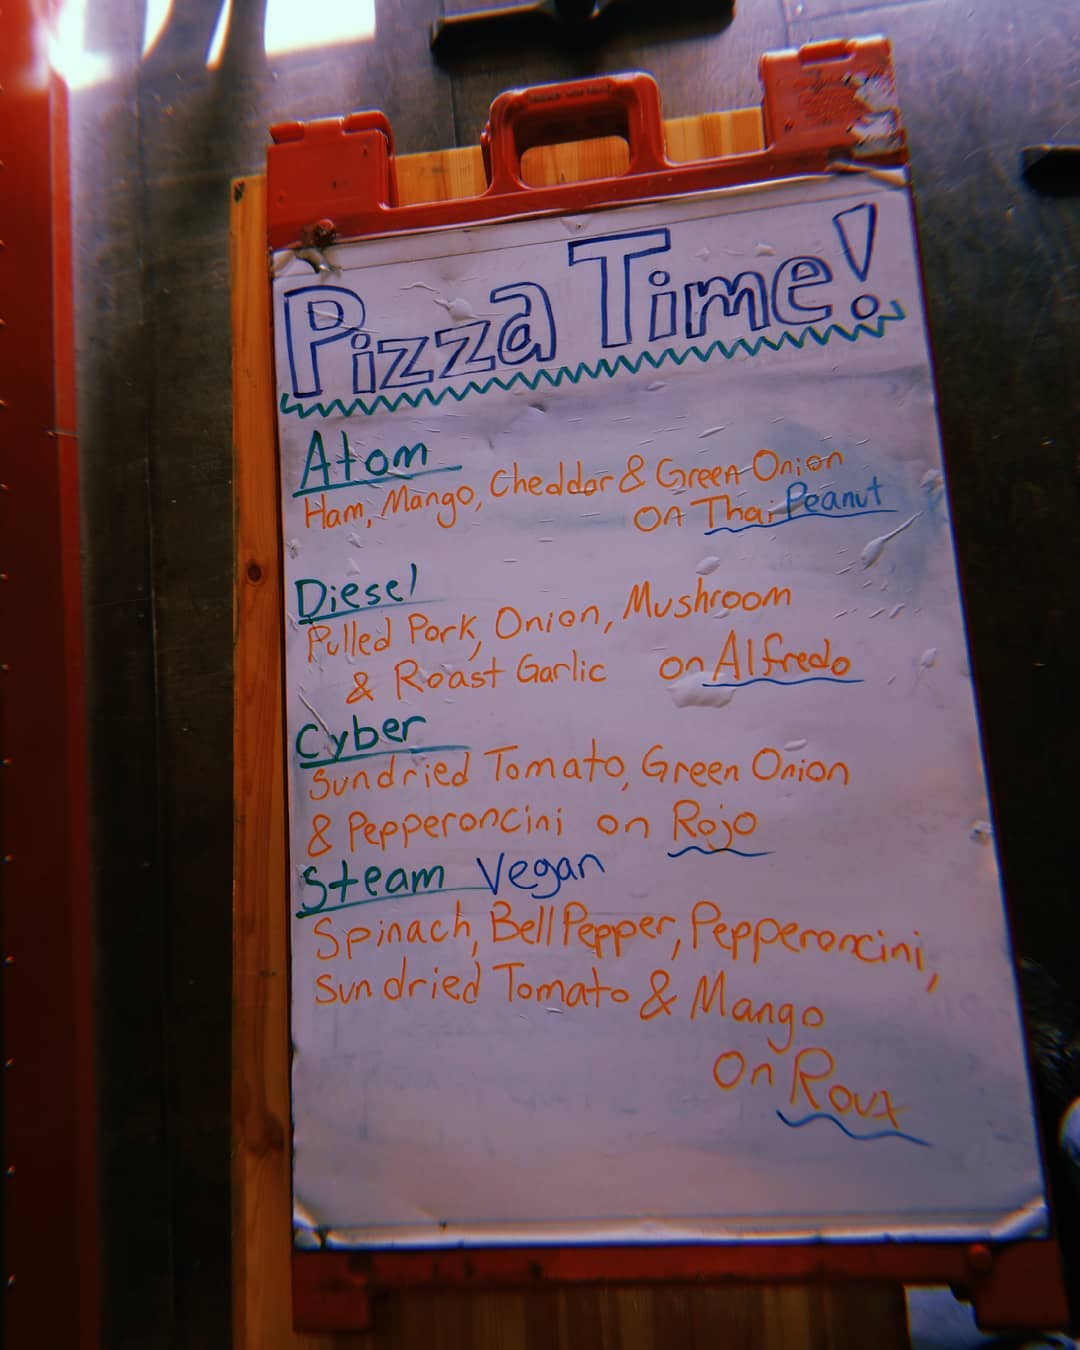 Pizza Time!
Atom
Ham, Mango, Cheddar & Green Onion
on Thai Peanut
Diesel
Pulled Pork, Onion, Mushroom
& Roast Garlic on Alfredo
Cyber
Sundried Tomato, Green Onion
& Pepperoncini on Rojo
Steam Vegan
Spinach, Bell Pepper, Pepperoncini,
Sundried Tomato & Mango
on Roux